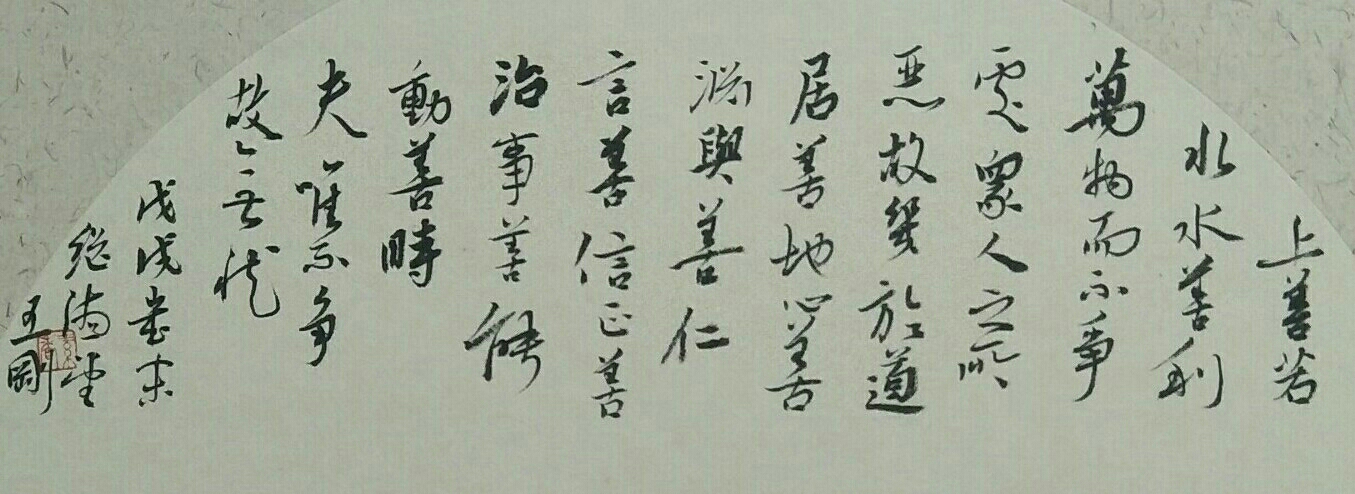 上善若
水水善利
萬物而不爭
處眾人之所
惡故幾於道
居善地心善
淵與善仁
言善信正善
治事善能
動善時
夫唯不争
故無忧
戊戌歲末
王剛